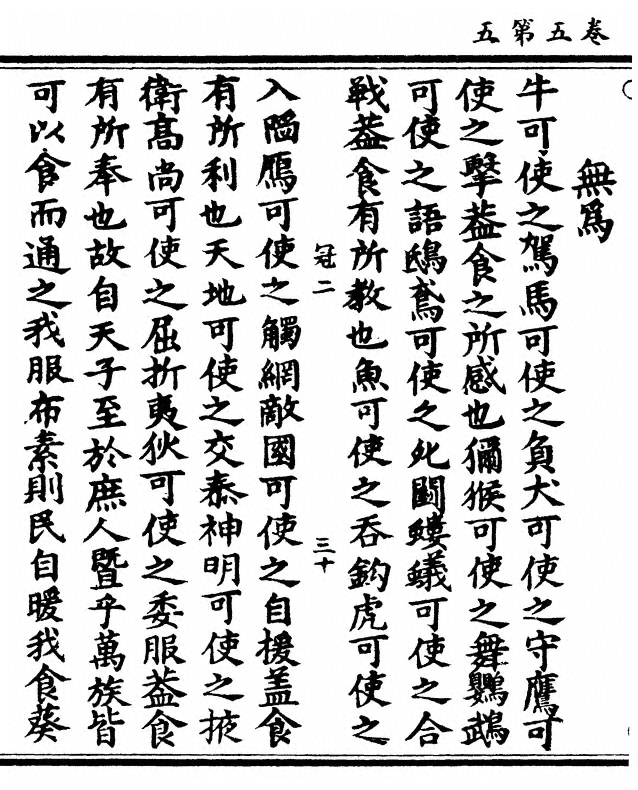 卷五第五
無爲
牛可使之駕馬可使之負犬可使之守鷹可
使之擊葢食之所感也獼猴可使之舞鸚鵡
可使之語鴟鳶可使之死鬪螻蟻可使之合
戰葢食有所教也魚可使之吞鈎虎可使之
冠二 三十
入陷鴈可使之觸網敵國可使之自援盖食
有所利也天地可使之交泰神明可使之掖
衛髙尚可使之屈折夷狄可使之委服葢食
有所奉也故自天子至於庶人暨乎萬族皆
可以食而通之我服布素則民自暖我食葵